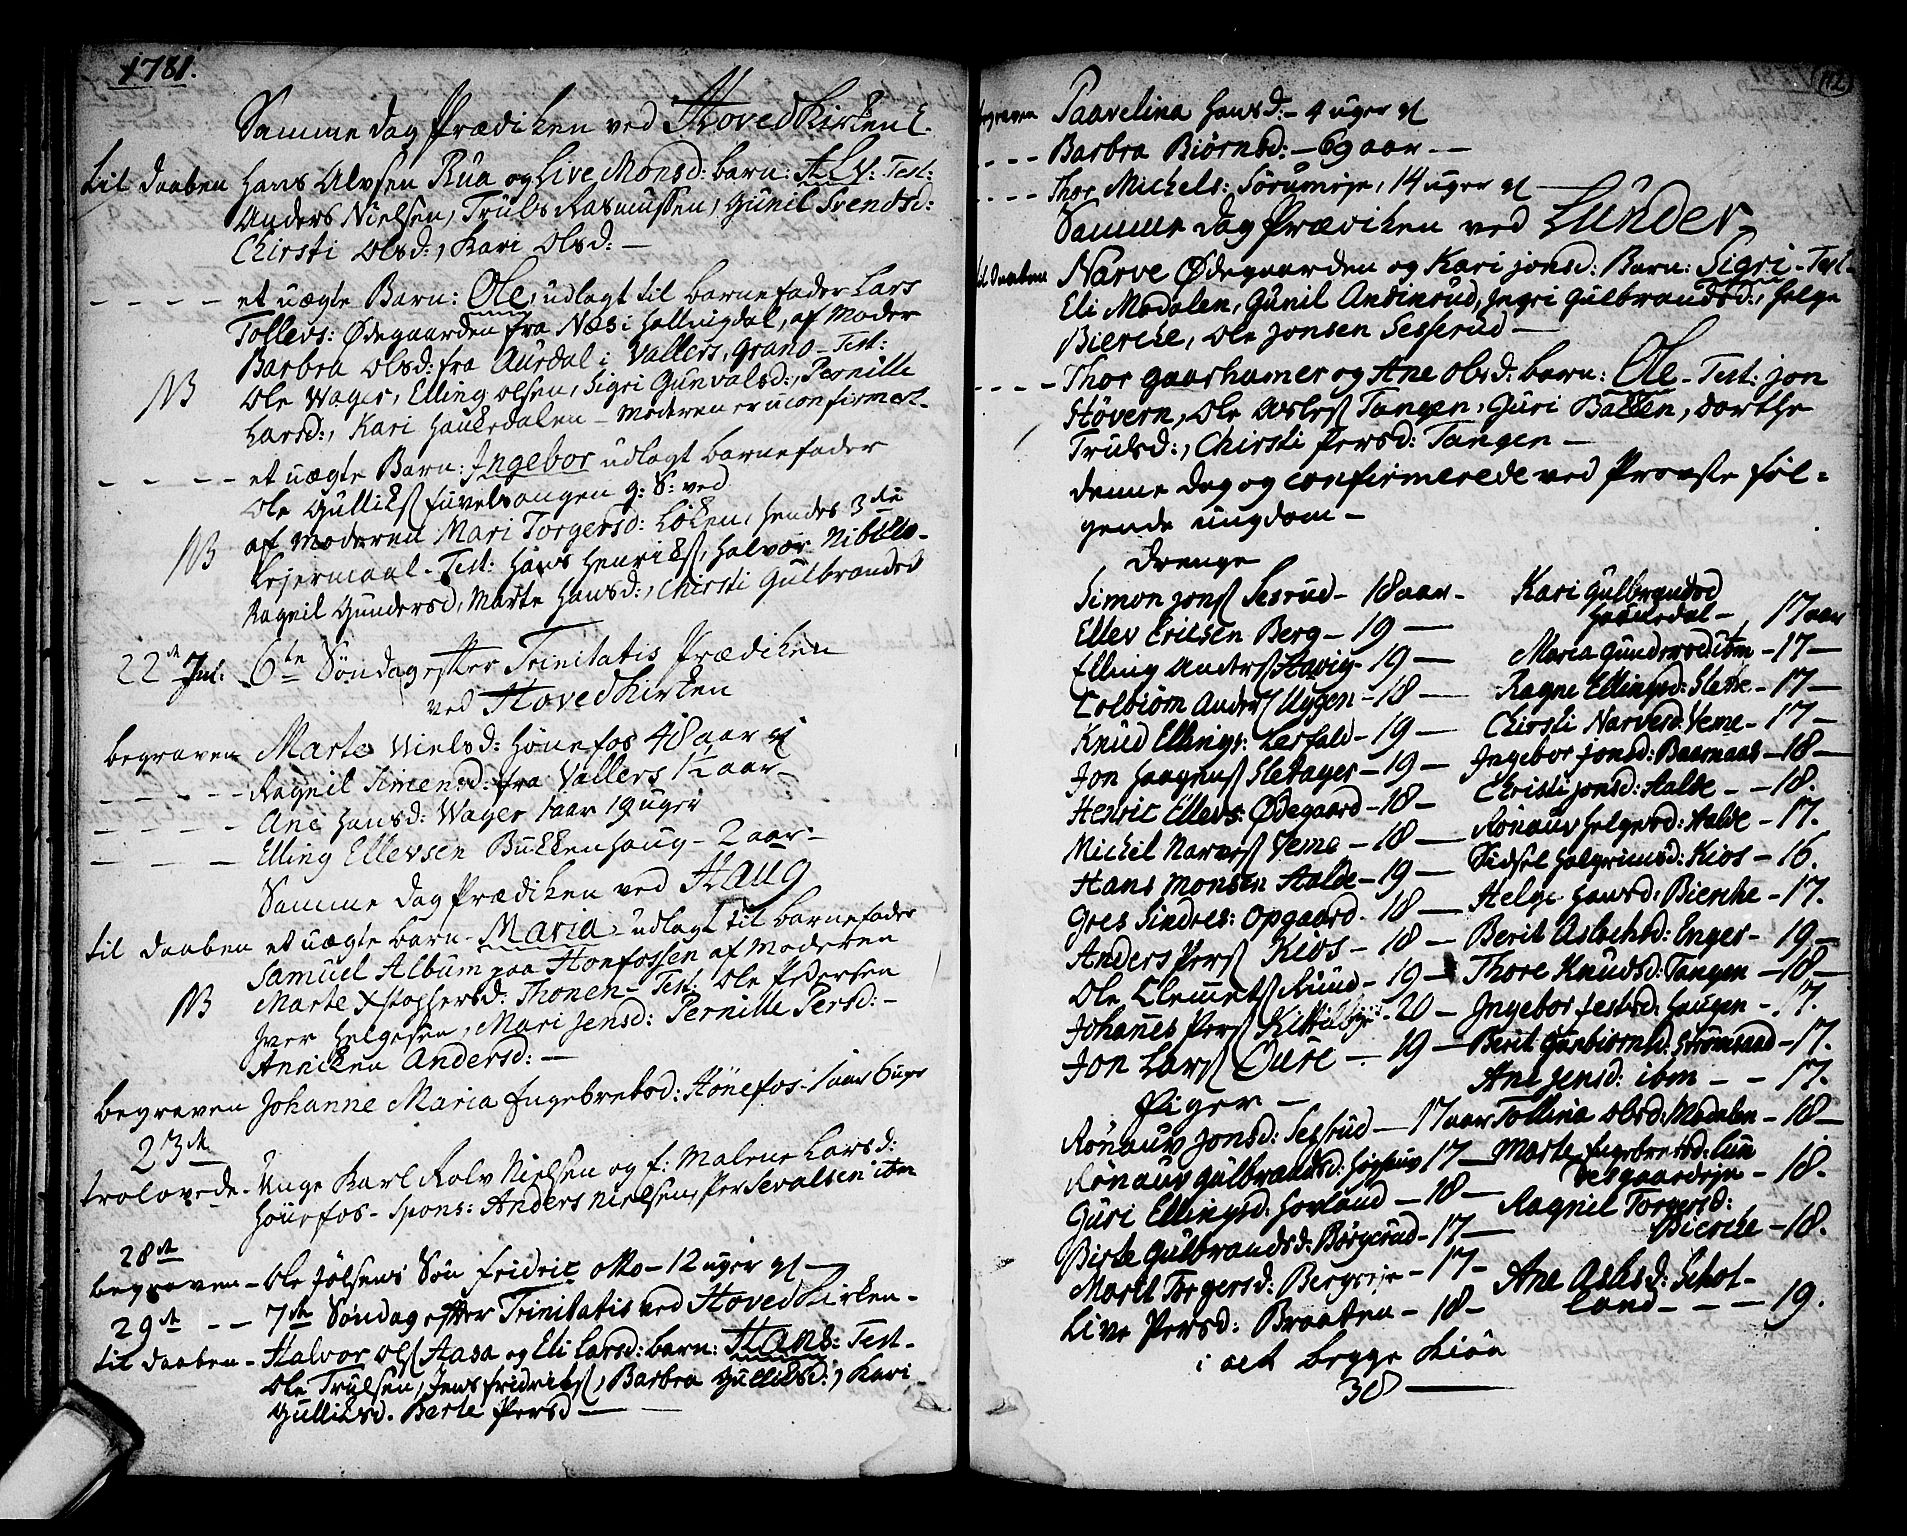 1781.
Samme dag Prædiken ved Hoved Kirken
til daaben Hans Alvsen Rua og Live Monsd: barn: Test:
Anders Nielsen, Truls Rasmussen, Gunil Svendsd:
Chirsti Olsd:, Kari Olsd: —
- - - - et uægte Barn: Ole, udlagt til barnefader Lars
Tollevs: Ødegaarden fra Næs i Hallingdal, af Moder
Barbra Olsd: fra Aurdal i Vallers, Test:
NB Ole Wager, Elling Olsen, Sigri Gunvalsd:, Pernille
Larsd:, Kari Haukedalen - Moderen er uconfirmert.
- - - - et uægte Barn: Ingebor udlagt barnefader
Ole Gulliks
NB af Moderen Mari Torgersd: Løken, hendes 3de
Lejermaal - Test: Hans Henriks, Halvor
Ragnil Gundersd, Marte Hansd:, Chirsti Gulbrandsd
22de Jul: 6te Søndag efter Trinitatis Prædiken
ved Hoved Kirken
begraven Marte Nielsd: Hønefos 48 aar gl
- - - - Ragnil Simensd: fra Vallers 1½ aar -
- - - - Ane Hansd: Wager 1 aar 19 uger
- - - Elling Ellevsen Bukkenhaug - 2 aar -
Samme dag Prædiken ved Haug
til daaben et uægte barn - Maria - udlagt til barnefader
Samuel Album paa Honfossen af Moderen
NB Marte Xstoffersd: Thonen - Test: Ole Pedersen
Iver Helgesen, Mari Jensd: Pernille Persd: -
Anniken Andersd: —
begraven Johanne Maria Engebretsd: Hønefos - 1 aar 6 uger
23de
trolovede - Unge Karl Rolv Nielsen og f: Malene Larsd:
Honefos - Spons: Anders Nielsen, Per Sevalsen ibm
28de
begraven - Ole Jølsens Søn Fridric Otto - 12 uger gl —
29de - - 7de Søndag efter Trinitatis ved Hoved Kirken -
til daaben - Halvor Ols Aasa og Eli Larsd: barn: Hans: Test -
Ole Trulsen, Jens Fridriks, Barbra Gulliksd:, Kari
Gulliksd. Berte Persd —
112
begraven Paavelina Hansd: - 4 uger gl
- - - - Barbra Biørnsd: - 69 aar - -
- - - - Thor Michels: Sørumeje, 14 uger gl
Samme dag Prædiken ved Lunder -
til daaben Narve Ødegaarden og Kari Jonsd: Barn: Sigri - Test -
Eli Modalen, Gunil Andinrud, Ingri Gulbrandsd:, Helge
Bierche, Ole Jonsen Sesserud —
- - - - Thor Gaarhamer og Ane Olsd: barn: Ole - Test: Jon
Støvern, Ole Asles Tangen, Guri Bakken, Dorthe
Trulsd:, Chirsti Persd: Tangen —
denne dag og confirmerede ved Provste føl=
gende ungdom —
Drenge
Simon Jons Sesrud - 18 aar -
Ellev Ericsen Berg - 19 —
Elling Anders Havig - 19 —
Colbiørn Anders Uggen - 18 —
Knud Ellings: Lerfald - 19 —
Jon Haagens Sletager - 19 —
Henric Ellevs: Ødegaard - 18 -
Michel Narves Veme - 18 —
Hans Monsen Halde - 19 —
Gres Sindres: Opgaard - 18 —
Anders Pers Kios - 18 —
Ole Clemets Ruud - 19 —
Johannes Pers - 20 —
Jon Lars Øure - 19 —
Piger -
Rønauv Jonsd: Sesrud — 17 aar
Rønauv Gulbrandsd: 17 —
Guri Ellingsd: Hovland - 18 —
Birte Gulbrandsd: Børgerud - 17 —
Marit Torgersd: Bergseje - 17 -
Live Persd: Braaten - 18 -
Kari Gulbrandsd
Haukedal -, 17 aar
Maria Gundersd ibm - 17 —
Ragne Ellingsd: Slette - 17 —
Chirsti Narvesd: Veme - 17 —
Ingebor Jonsd: Baarnaas - 18 —
Christi Jonsd: Halde - - 18.
Rønauv Helgesd: Halde - 17.
Sidsel Halgrimsd: Kios - 16.
Helge Hansd: Bierche - 17.
Berit Aslachsd: Enger - 19 —
Thore Knudsd: Tangen - 18 —
Ingebor Haugen - 17.
Berit Gunbiørnsd: Strømsaad - 17.
Ane Jensd: ibm - - 17.
Tollina Olsd: Modalen - 18 —
Marte Engebretsd: Lun
desgaardeje - 18.
Ragnil Torgersd:
Bierche - 18.
Ane Aslesd: Schot-
land - - - 19.
i alt begge Kiøn
38 —